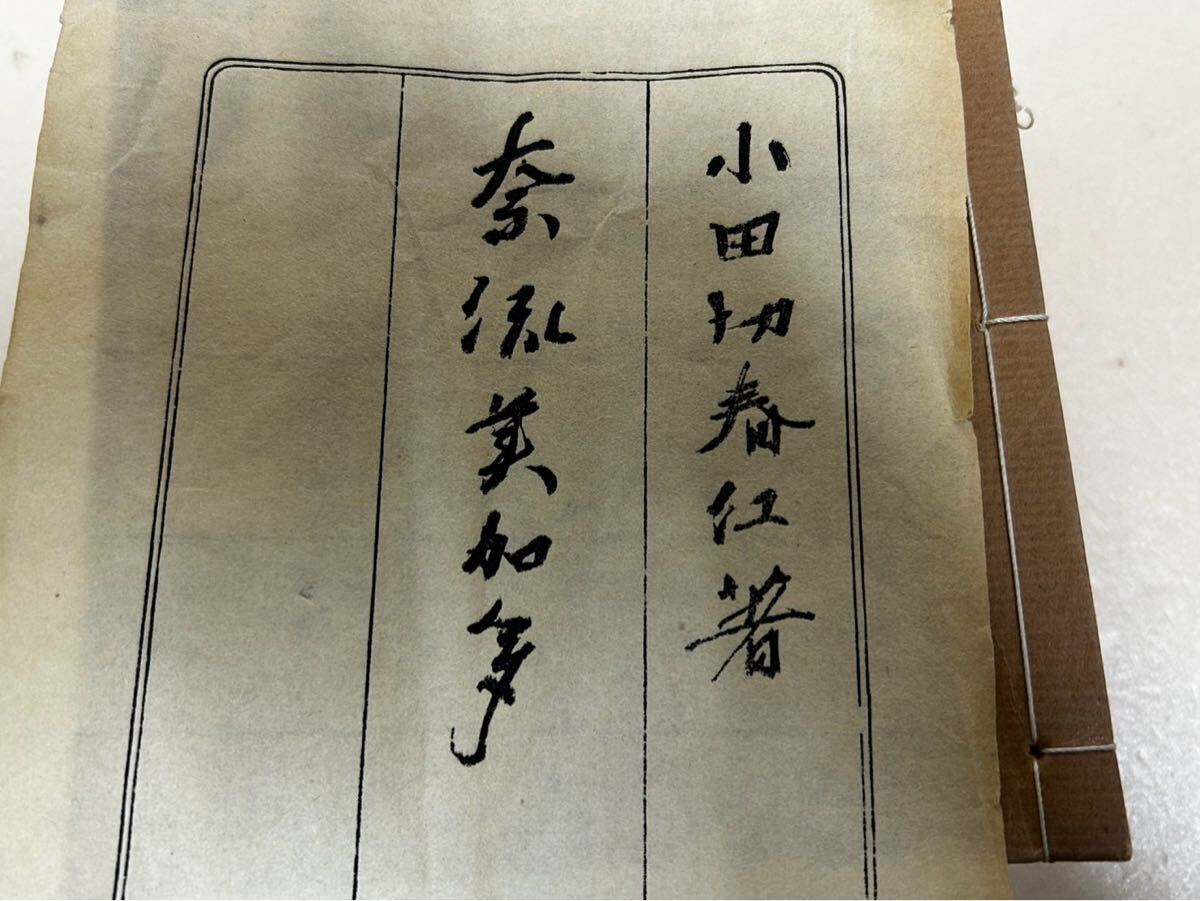 小田切春江著
奈流美加多